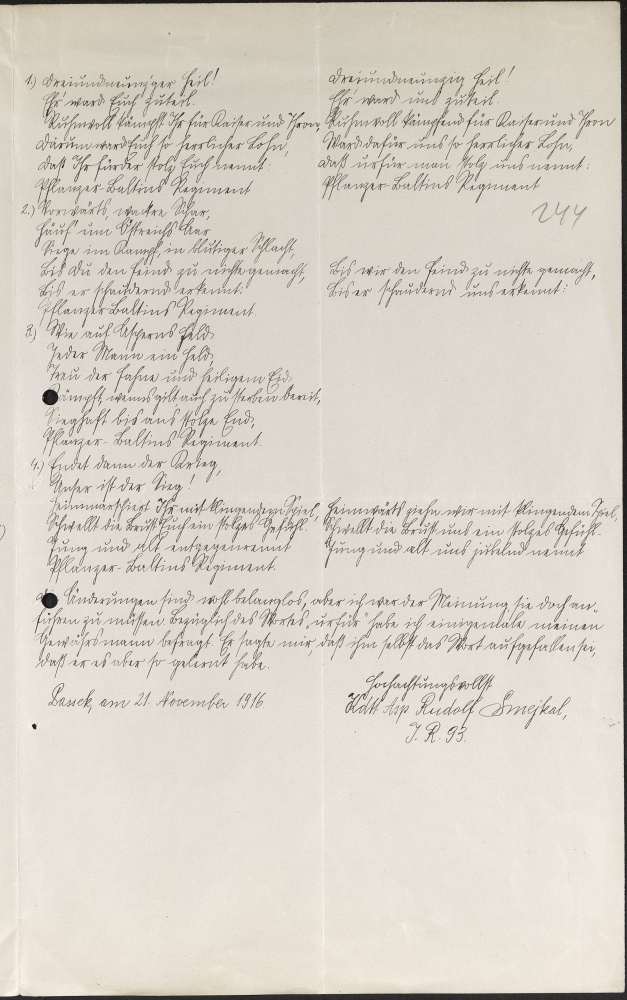 1.) Dreiundneunz'ger Heil!
Ehr' ward Euch zuteil.
Ruhmvoll kämpft Ihr für Kaiser und Thron,
Darum ward Euch so herrlicher Lohn,
Daß Ihr fürder stolz Euch nennt:
Pflanzer-Baltins Regiment
2.) Vorwärts, wackre Schar,
Häuf' um Östreichs Aar
Siege im Kampf, in blutiger Schlacht,
Bis Du den Feind zu nichte gemacht,
Bis er schaudernd erkennt:
Pflanzer Baltins Regiment.
3.) Wie auf Asperns Feld
Jeder Mann ein Held,
Treu der Fahne und heiligem Eid
Kämpft, wenns gilt auch zu sterben bereit,
Sieghaft bis ans stolze End,
Pflanzer-Baltins Regiment.
4.) Endet dann der Krieg,
Unser ist der Sieg!
Heimmarschiert Ihr mit klingendem Spiel,
Schwellt die Brust Euch ein stolzes Gefühl.
Jung und Alt entgegenrennt
Pflanzer-Baltins Regiment.
Dreiundneunzig Heil!
Ehr' ward uns zuteil.
Ruhmvoll kämpfend für Kaiser und Thron
Ward dafür uns so herrlicher Lohn,
Daß urfür man stolz uns nennt:
Pflanzer-Baltins Regiment
244
Bis wir den Feind zu nichte gemacht,
Bis er schaudernd uns erkennt:
Heimwärts ziehn wir mit klingendem Spiel,
Schwellt die Brust uns ein stolzes Gefühl.
Jung und alt uns jubelnd nennt
Änderungen sind wohl belanglos, aber ich war der Meinung sie doch an-
führen zu müssen. Bezüglich des Wortes, urfür habe ich einigemale meinen
Gewährsmann befragt. Er sagte mir, daß ihm selbst das Wort aufgefallen sei,
daß er es aber so gelernt habe.
am 21. November 1916
Hochachtungsvollst
Kdtt Asp Rudolf Smejkal,
I. R. 93.